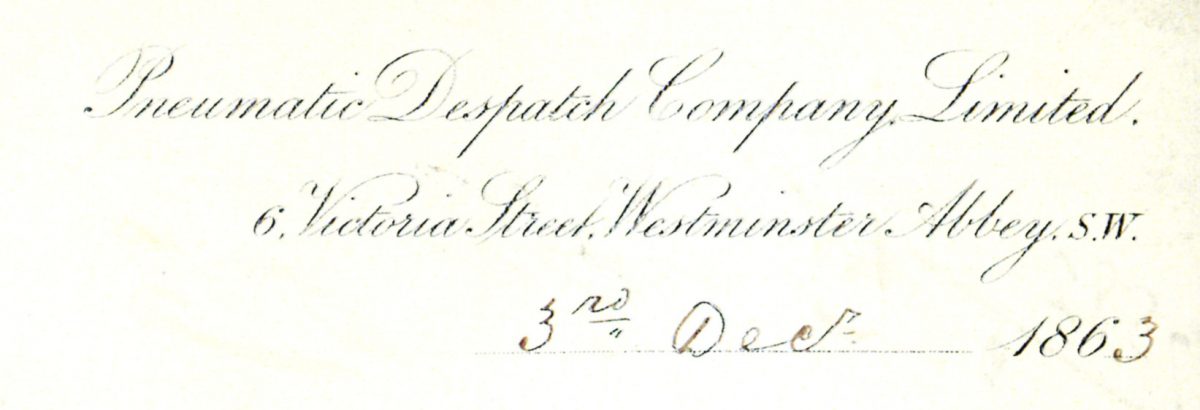 Pneumatic Despatch Company, Limited.
6, Victoria Street, Westminster Abbey, S.W.
3rd Decr. 1863